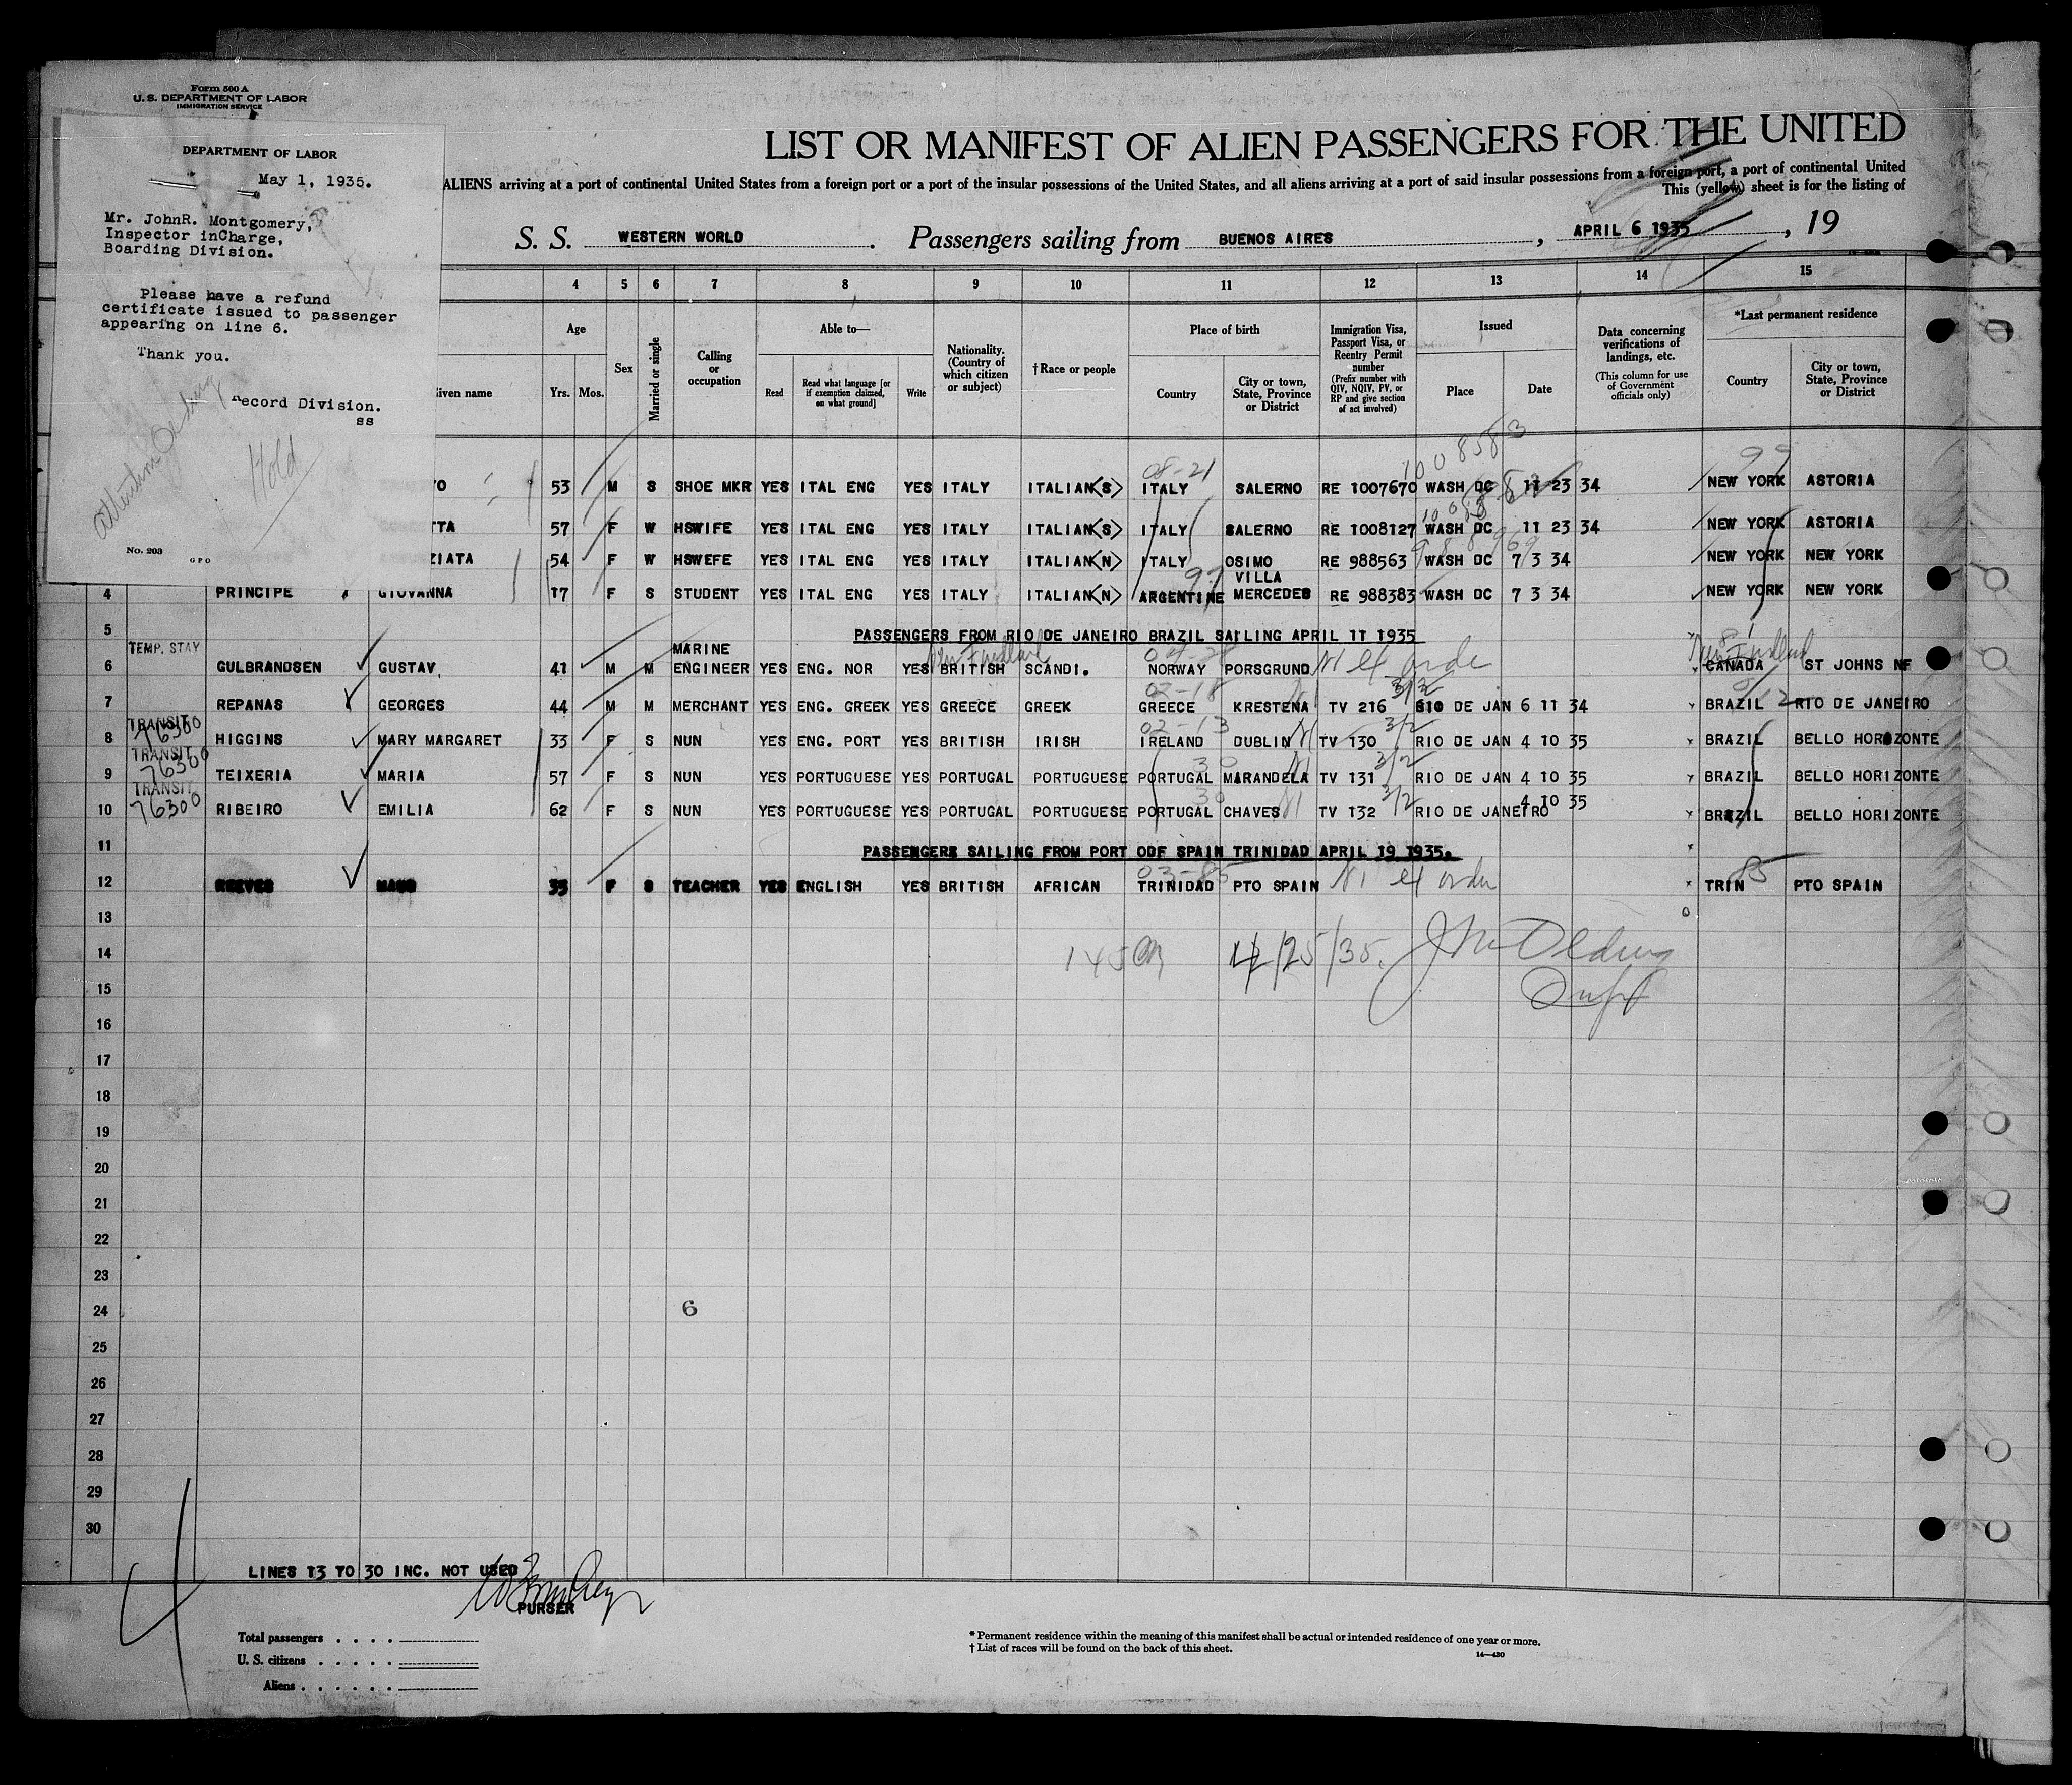 Form 500 A
U. S. DEPARTMENT OF LABOR
IMMIGRATION SERVICE
DEPARTMENT OF LABOR
May 1, 1935.
Mr. JohnR. Montgomery,
Inspector inCharge,
Boarding Division.
Please have a refund
certificate issued to passenger
appearing on line 6.
Thank you.
Record Division.
ss
Hold
No. 203
GPO
LIST OR MANIFEST OF ALIEN PASSENGERS FOR THE UNITED
ALIENS arriving at a port of continental United States from a foreign port or a port of the insular possessions of the United States, and all aliens arriving at a port of said insular possessions from a foreign port, a port of continental United
This (yellow) sheet is for the listing of
S. S. WESTERN WORLD . Passengers sailing from BUENOS AIRES , APRIL 6 1935 , 19
4 5 6 7 8 9 10 11 12 13 14 15
Given name
Age
Yrs. Mos.
Sex
Married or single
Calling or occupation
Able to—
Read
Read what language [or if exemption claimed, on what ground]
Write
Nationality. (Country of which citizen or subject)
† Race or people
Place of birth
Country
City or town, State, Province or District
Immigration Visa, Passport Visa, or Reentry Permit number
(Prefix number with QIV, NQIV, PV, or RP and give section of act involved)
Issued
Place
Date
Data concerning verifications of landings, etc.
(This column for use of Government officials only)
*Last permanent residence
Country
City or town, State, Province or District
100 8583
08-21 99
O 53 M S SHOE MKR YES ITAL ENG YES ITALY ITALIAN(S) ITALY SALERNO RE 1007670 WASH DC 11 23 34 NEW YORK ASTORIA
TTA 57 F W HSWIFE YES ITAL ENG YES ITALY ITALIAN(S) ITALY SALERNO RE 1008127 WASH DC 11 23 34 NEW YORK ASTORIA
ZIATA 54 F W HSWEFE YES ITAL ENG YES ITALY ITALIAN(N) ITALY OSIMO RE 988563 WASH DC 7 3 34 NEW YORK NEW YORK
4 PRINCIPE GIOVANNA 17 F S STUDENT YES ITAL ENG YES ITALY ITALIAN(N) ARGENTINE VILLA MERCEDES RE 988383 WASH DC 7 3 34 NEW YORK NEW YORK
5 PASSENGERS FROM RIO DE JANEIRO BRAZIL SAILING APRIL 11 1935
TEMP. STAY
6 GULBRANDSEN GUSTAV, 41 M M MARINE ENGINEER YES ENG. NOR YES BRITISH SCANDI. NORWAY PORSGRUND CANADA ST JOHNS NF
02-18 3/2
7 REPANAS GEORGES 44 M M MERCHANT YES ENG. GREEK YES GREECE GREEK GREECE KRESTENA TV 216 RIO DE JAN 6 11 34 BRAZIL RIO DE JANEIRO
TRANSIT 76300 02-13 3/2
8 HIGGINS MARY MARGARET 33 F S NUN YES ENG. PORT YES BRITISH IRISH IRELAND DUBLIN TV 130 RIO DE JAN 4 10 35 BRAZIL BELLO HORIZONTE
TRANSIT 76300 30 3/2
9 TEIXERIA MARIA 57 F S NUN YES PORTUGUESE YES PORTUGAL PORTUGUESE PORTUGAL MARANDELA TV 131 RIO DE JAN 4 10 35 BRAZIL BELLO HORIZONTE
TRANSIT 76300 30 3/2
10 RIBEIRO EMILIA 62 F S NUN YES PORTUGUESE YES PORTUGAL PORTUGUESE PORTUGAL CHAVES TV 132 RIO DE JANEIRO 4 10 35 BRAZIL BELLO HORIZONTE
11 PASSENGERS SAILING FROM PORT ODF SPAIN TRINIDAD APRIL 19 1935.
03-85 85
12 REEVES MAUD 35 F S TEACHER YES ENGLISH YES BRITISH AFRICAN TRINIDAD PTO SPAIN TRIN PTO SPAIN
13
14
15
16
17
18
19
20
21
22
23
24 6
25
26
27
28
29
30
LINES 13 TO 30 INC. NOT USED
PURSER
Total passengers
U. S. citizens
Aliens
* Permanent residence within the meaning of this manifest shall be actual or intended residence of one year or more.
† List of races will be found on the back of this sheet.
14—430